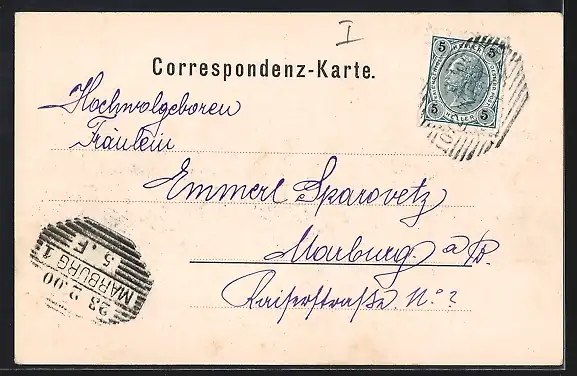 I
Correspondenz-Karte.
Hochwolgeboren
Fräulein
Emmerl Sparovetz
Marburg a/D.
Kaiserstraße. N.º 2
5 5
5 5
HELLER
MARBURG 1
23 2 00
5. F